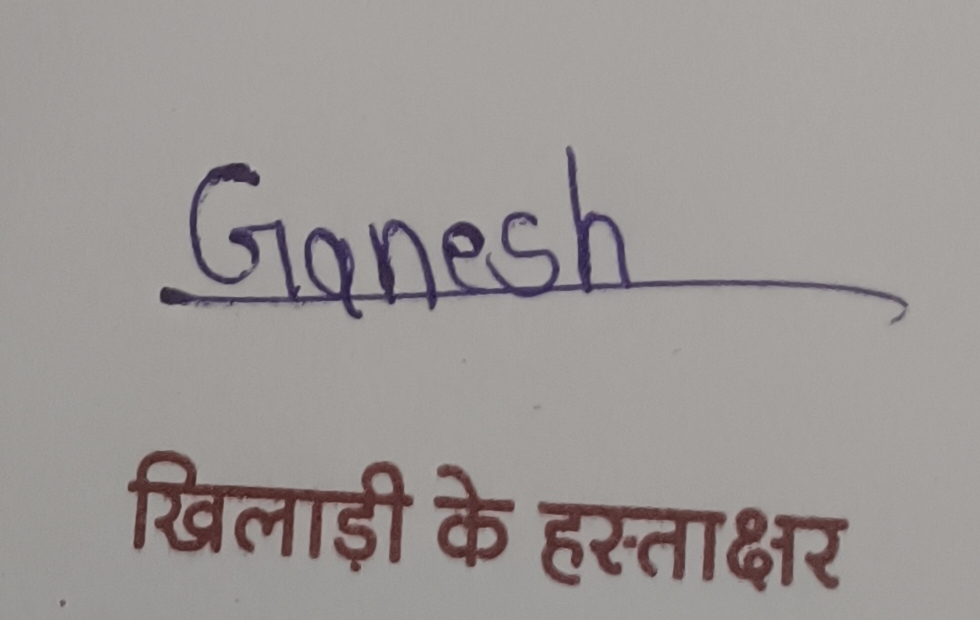 Ganesh
खिलाड़ी के हस्ताक्षर